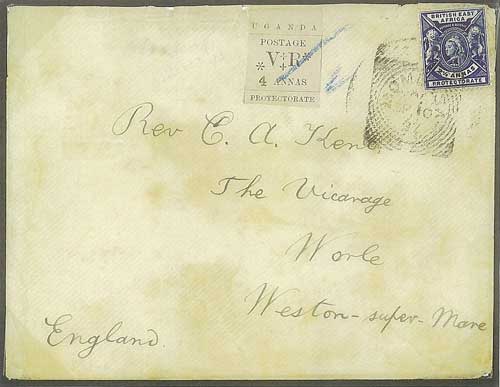 UGANDA
POSTAGE
V R
4 ANNAS
PROTECTORATE
BRITISH EAST
AFRICA
ANNAS
PROTECTORATE
Rev C. A. Kene
The Vicarage
Worle
Weston-super-Mare
England.